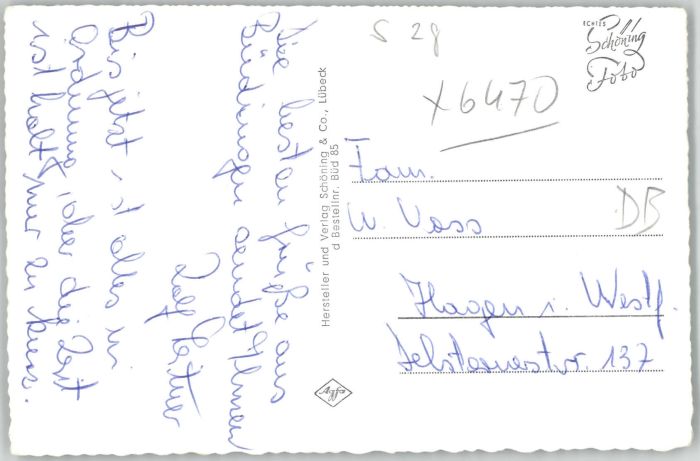 Die besten Grüße aus
Büdingen sendet Ihnen
Rolf
Bis jetzt ist alles in
Ordnung, aber die Zeit
ist halt nur zu kurz.
Hersteller und Verlag Schöning & Co., Lübeck
d Bestellnr. Büd 85
S 28
X6470
ECHTES
Schöning
Foto
Fam.
W. Voss
DB
Hagen i. Westf.
137
Agfa